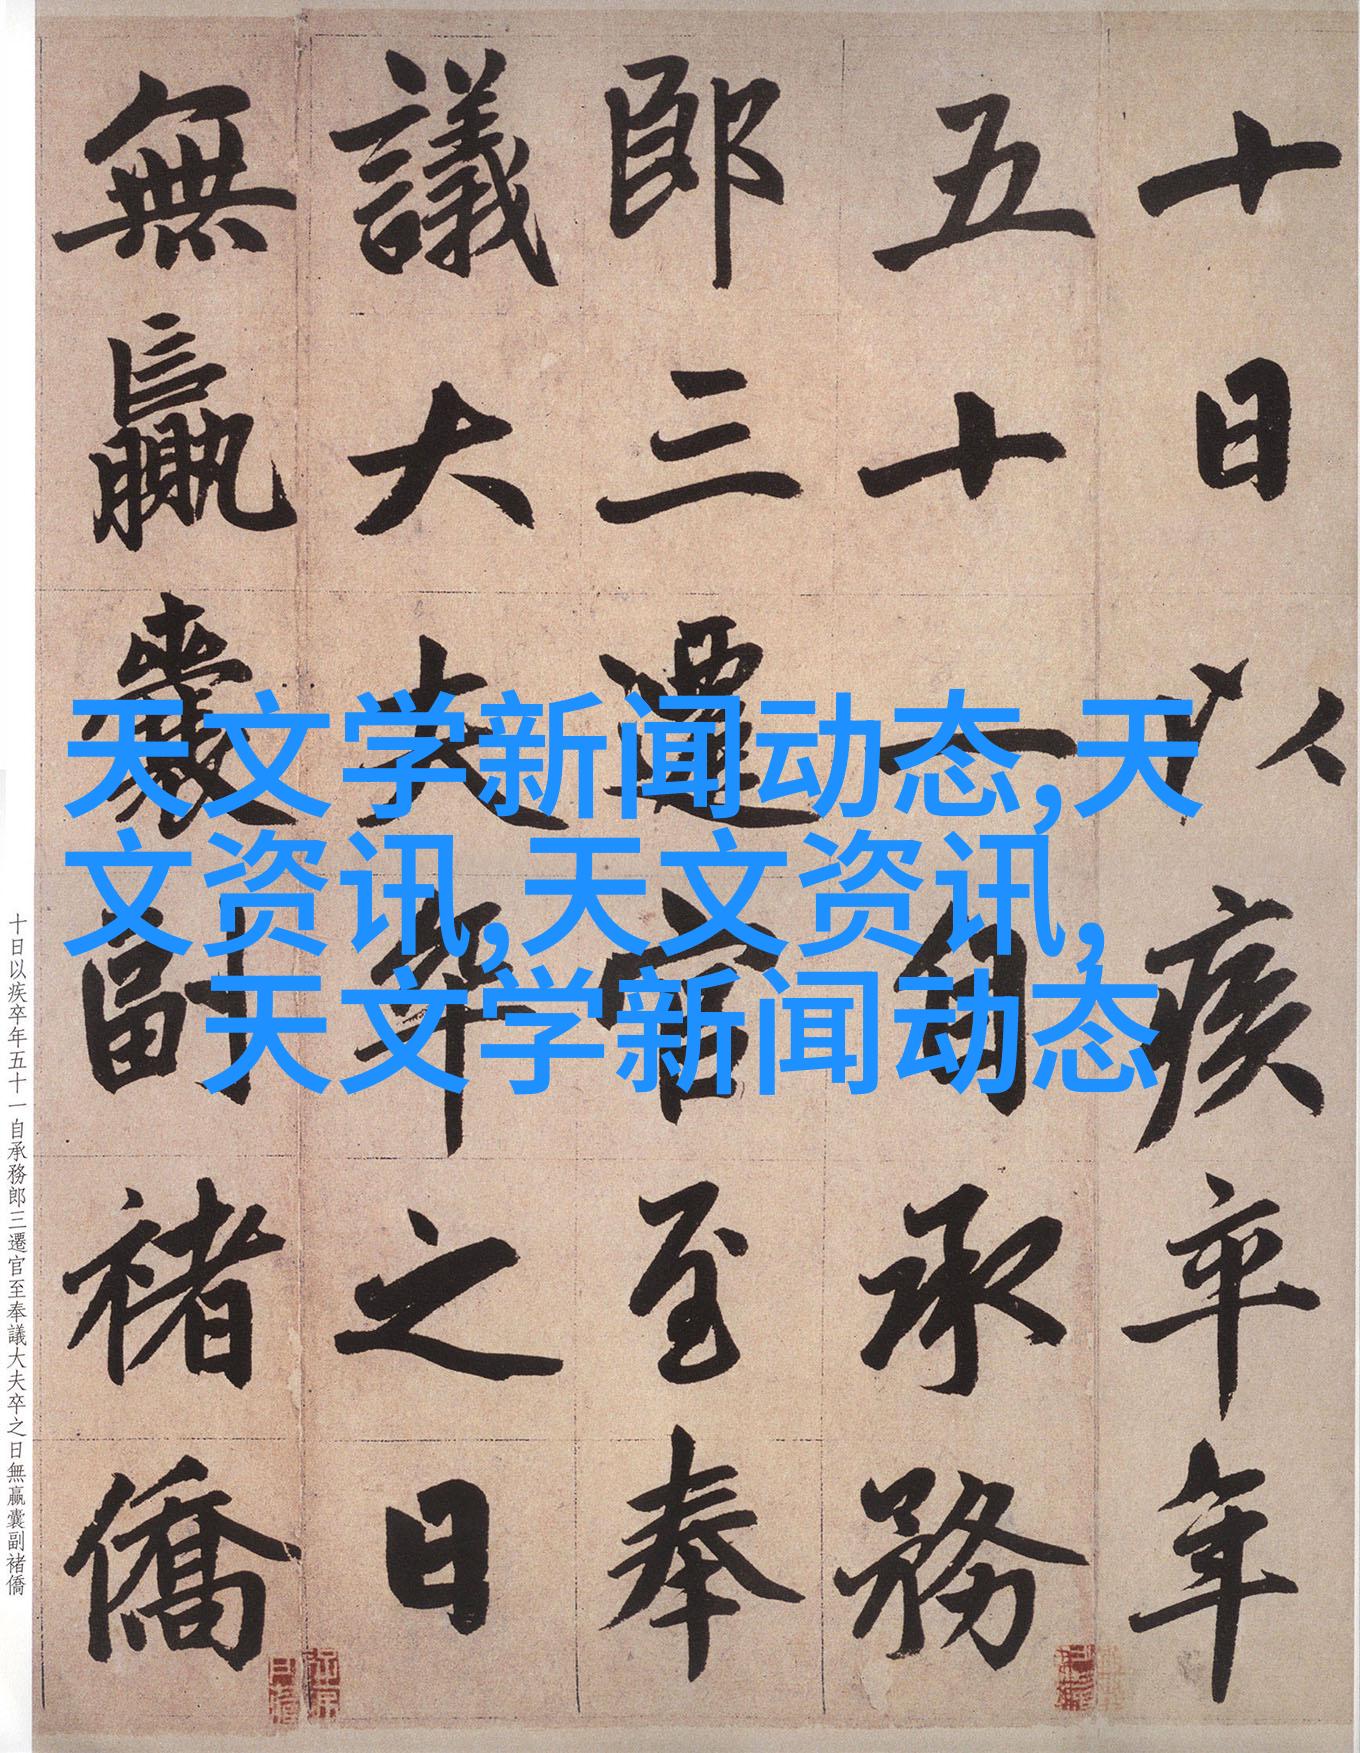 十日以疾卒年
五十一自承務
郎三遷官至奉
議大夫卒之日
無贏囊副褚僑
天文学新闻动态,天
文资讯,天文资讯,
天文学新闻动态
十日以疾卒年五十一自承務郎三遷官至奉議大夫卒之日無贏囊副褚僑